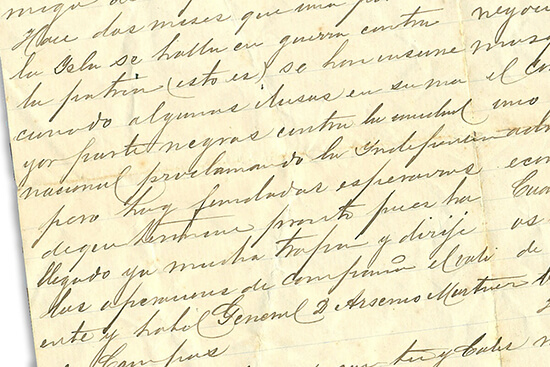 migo
Hace dos meses que una pa
la Isla se halla en guerra contra
la patria (esto es) se han insurre
cionado algunos ilusos en su ma
yor parte negros contra la unidad
nacional proclamando la Independen
pero hay fundadas esperanzas
de que termine pronto pues ha
llegado ya mucha tropa y dirije
las operaciones de campaña el vali
ente y habil General D Arsenio Martinez
Campos
negoci
el
uno
econ
Cua
os
de